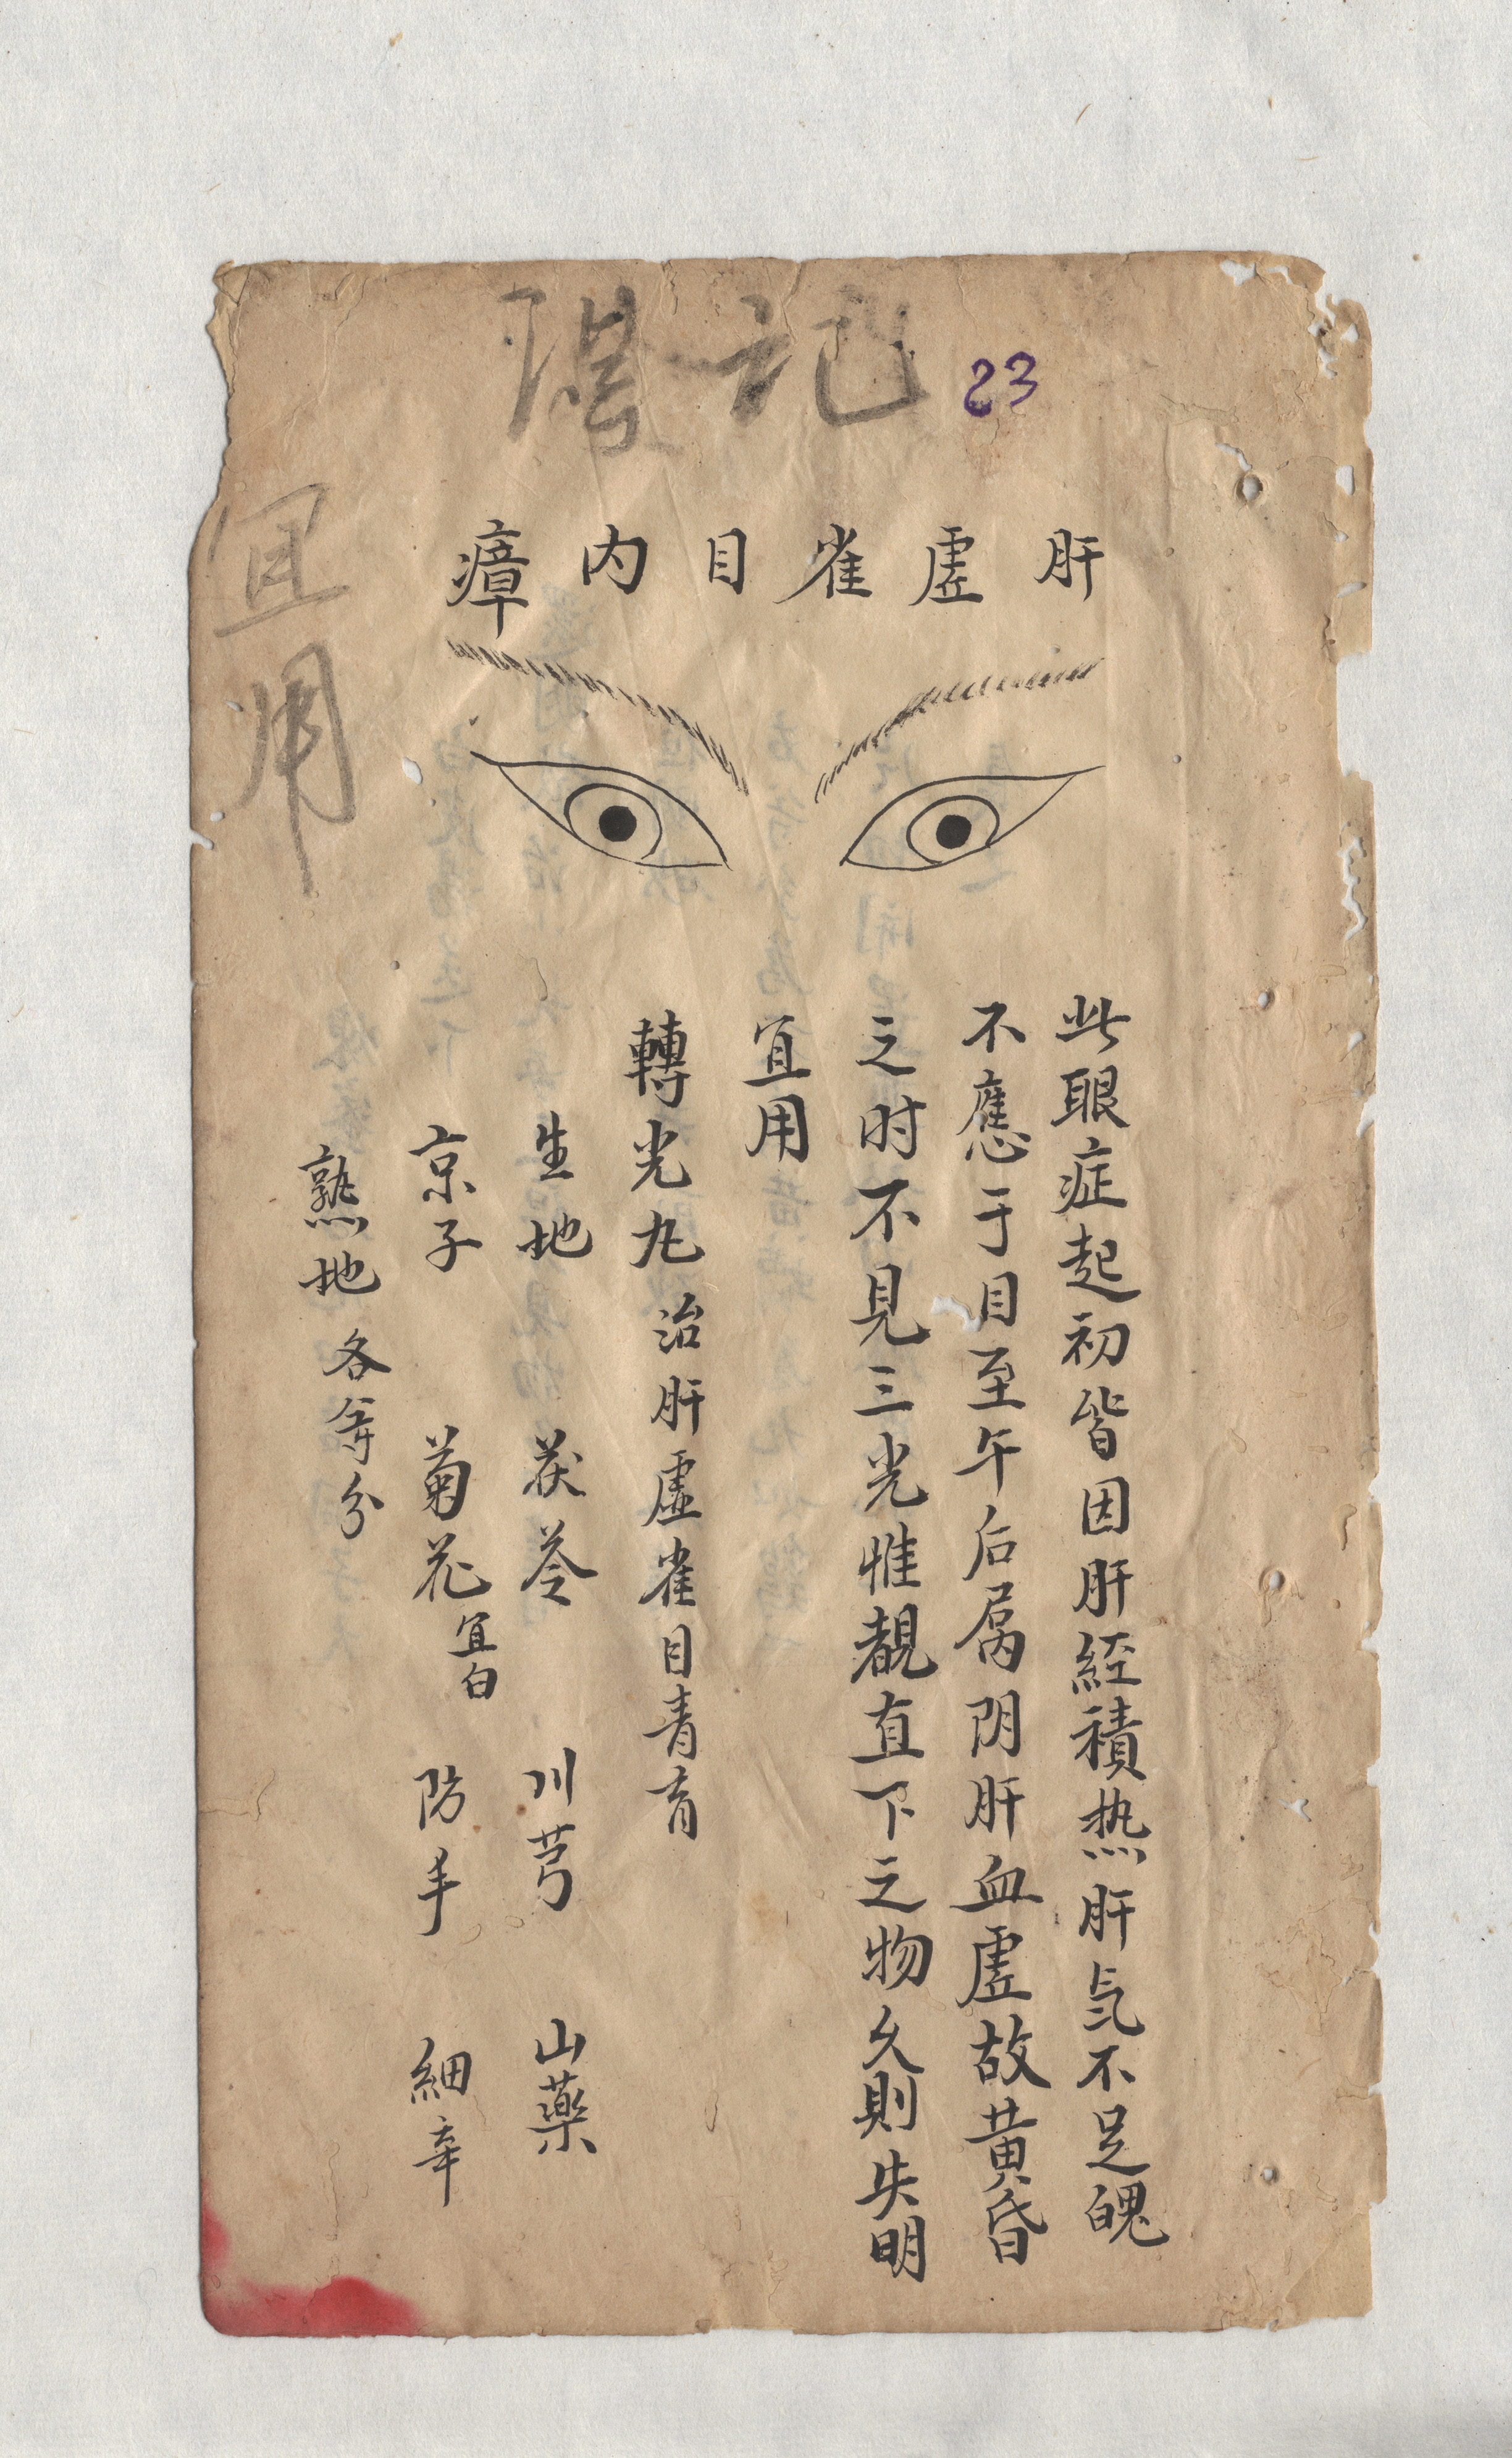 23
肝虛雀目內瘴
此眼症起初皆因肝經積热肝気不足魄
不應于目至午后属阴肝血虛故黄昏
之时不見三光惟覩直下之物久則失明
宜用
轉光丸 治肝虛雀目青盲
生地 茯苓 川芎 山藥
京子 菊花 宜白 防手 細辛
熟地 各等分
宜用